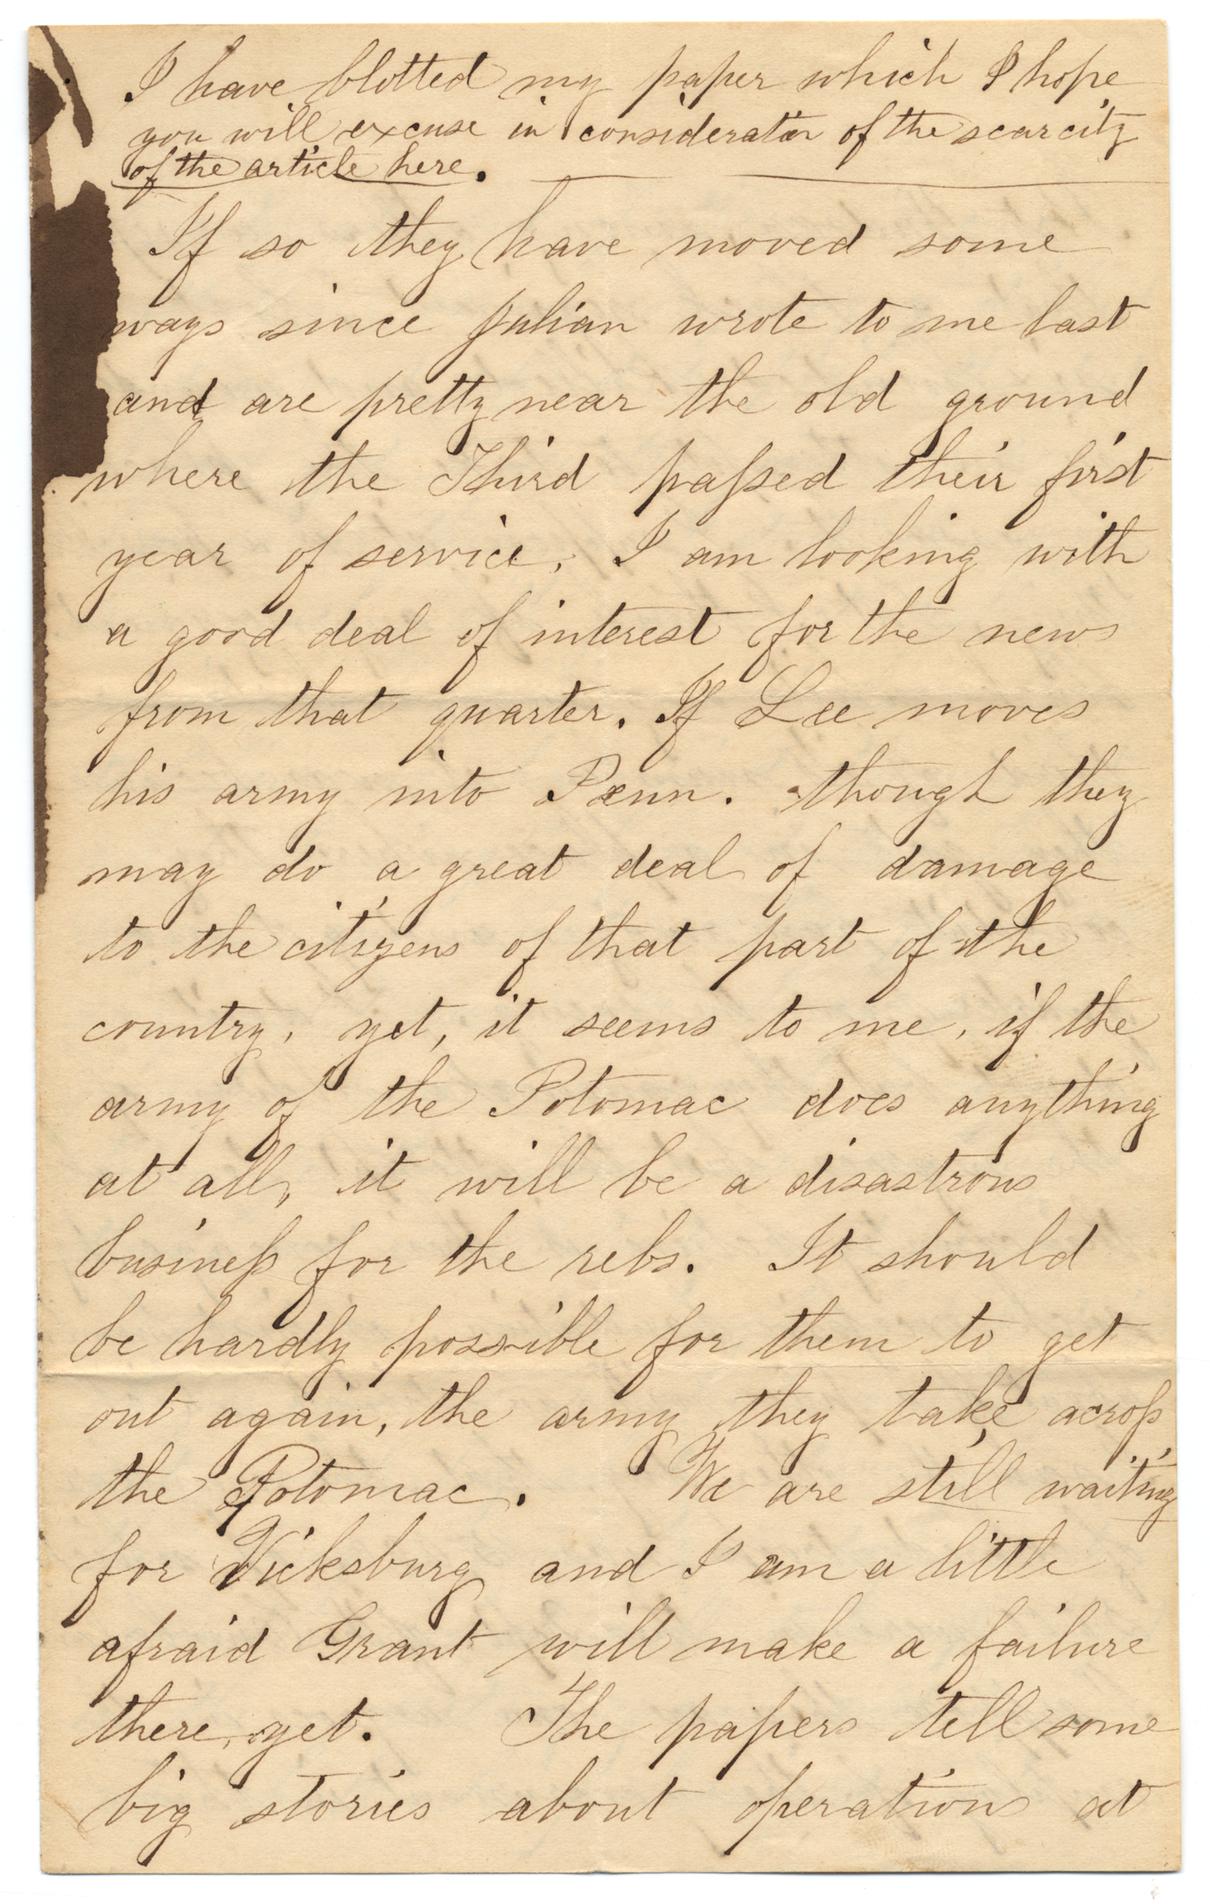 I have blotted my paper which I hope
you will excuse in consideration of the scarcity
of the article here.
If so they have moved some
ways since Julian wrote to me last
and are pretty near the old ground
where the Third passed their first
year of service. I am looking with
a good deal of interest for the news
from that quarter. If Lee moves
his army into Penn. though they
may do a great deal of damage
to the citizens of that part of the
country, yet, it seems to me, if the
army of the Potomac does anything
at all, it will be a disastrous
business for the rebs. It should
be hardly possible for them to get
out again, the army they take across
the Potomac. We are still waiting
for Vicksburg and I am a little
afraid Grant will make a failure
there, yet. The papers tell some
big stories about operations at